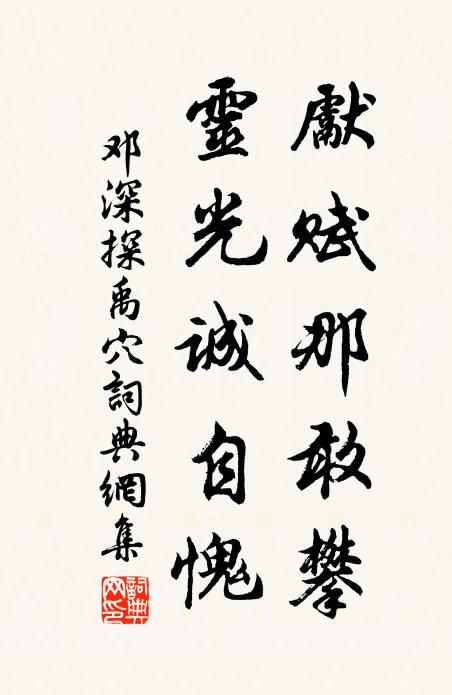 獻賦那敢攀
靈光誠自愧
邓深探禹穴詞典網集
詞典網印